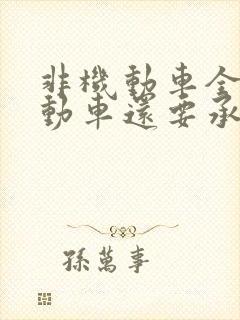 非機動車全
動車還要承
孫萬事